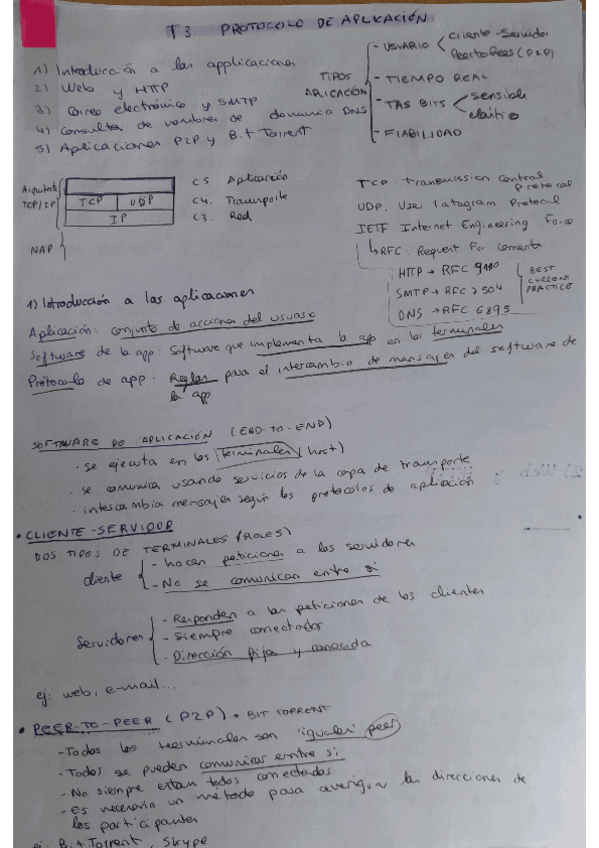 T3 PROTOCOLO DE APLICACIÓN
1) Introducción a las applicaciones
2) Web y HTTP
3) Correo electrónico y SMTP
4) Consulta de nombres de dominio DNS
5) Aplicaciones P2P y BitTorrent
TIPOS APLICACIÓN
- USUARIO
Cliente-Servidor
(P2P)
- TIEMPO REAL
- TAS BITS
sensible
elástico
- FIABILIDAD
TCP/IP
TCP UDP
IP
NAP
C5 Aplicación
C4. Transporte
C3. Red
TCP: Transmission Control Protocol
UDP: Use Datagram Protocol
IETF: Internet Engineering Force
RFC: Request For Comments
HTTP → RFC 9110
SMTP → RFC 7504
DNS → RFC 6895
BEST CURRENT PRACTICE
1) Introducción a las aplicaciones
Aplicación: conjunto de acciones del usuario
Software de la app: Software que implementa la app en los terminales
Protocolo de app: Reglas para el intercambio de mensajes del software de
la app
SOFTWARE DE APLICACIÓN (END-TO-END)
· se ejecuta en los terminales (host)
· se comunica usando servicios de la capa de transporte
· intercambia mensajes según los protocolos de aplicación
• CLIENTE-SERVIDOR
DOS TIPOS DE TERMINALES (ROLES)
cliente
- hacen peticiones a los servidores
- No se comunican entre si
Servidores
- Responden a las peticiones de los clientes
- Siempre conectados
- Dirección fija y conocida
ej: web, e-mail...
• PEER-TO-PEER (P2P) • BIT TORRENT
- Todos los terminales son "iguales" peers
- Todos se pueden comunicar entre si
- No siempre estan todos conectados
- Es necesario un método para averiguar las direcciones de
los participantes
ej: BitTorrent, Skype